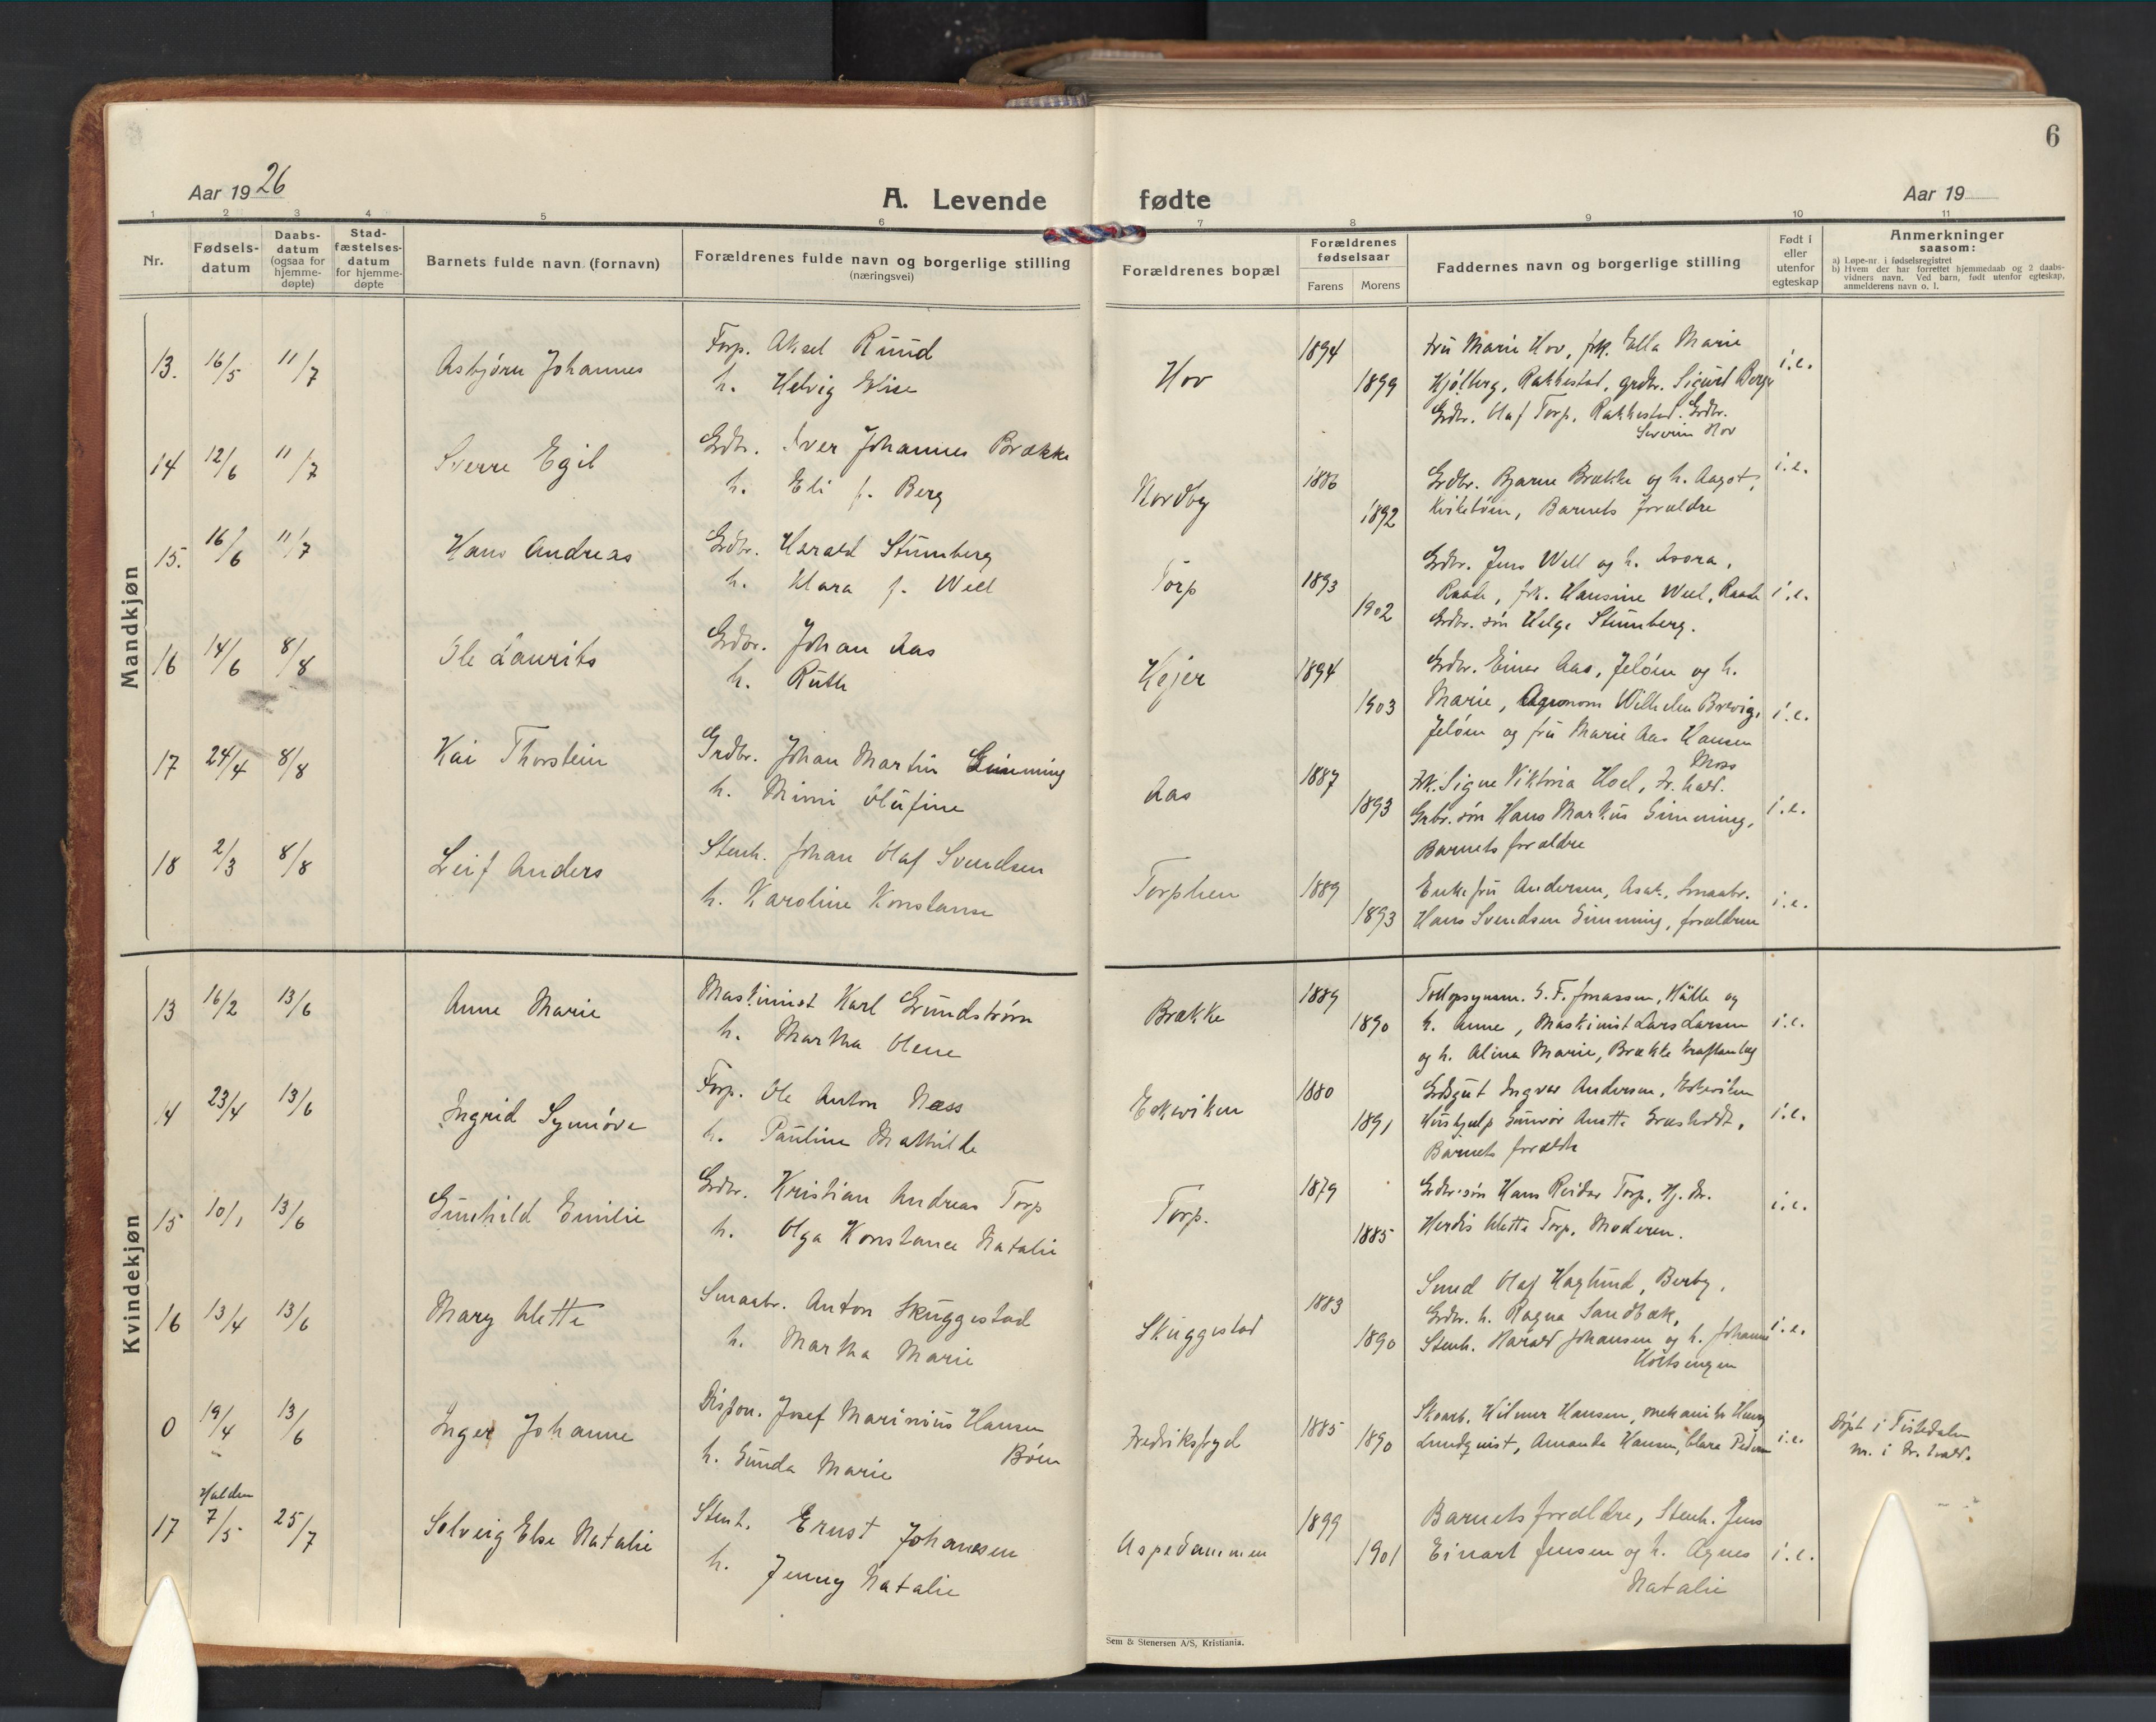 6
Aar 1926
A. Levende
fødte
Aar 19
1 2 3 4 5 6 7 8 9 10 11
Nr.
Fødsels-
datum
Daabs-
datum
(ogsaa for
hjemme-
døpte)
Stad-
fæstelses-
datum
for hjemme-
døpte
Barnets fulde navn (fornavn)
Forældrenes fulde navn og borgerlige stilling
(næringsvei)
Forældrenes bopæl
Forældrenes
fødselsaar
Farens Morens
Faddernes navn og borgerlige stilling
Født i
eller
utenfor
egteskap
Anmerkninger
saasom:
a) Løpe-nr. i fødselsregistret
b) Hvem der har forrettet hjemmedaab og 2 daabs-
vidners navn. Ved barn, født utenfor egteskap,
anmelderens navn o. l.
Mandkjøn
13. 16/5 11/7 Asbjørn Johannes
Forp. Aksel Ruud
h. Helvig Elise
Hov 1894 1899
Fru Marie Hov, frk. Ella Marie
Kjølberg, Rakkestad, grdbr. Sigurd Berge
Grdbr. Olaf Torp, Rakkestad. Grdbr.
Severin Hov
i.e.
14 12/6 11/7 Sverre Egil
Grdbr. Iver Johannes Brække
h. Eli f. Berg
Nordby 1886 1892
Grdbr. Bjarne Brække og h. Aagot,
Barnets forældre
i.e.
15. 16/6 11/7 Hans Andreas
Grdbr. Harald Stumberg
h. Klara f. Well
Torp 1893 1902
Grdbr. Jens Well og h. Asora,
Raade, frk. Hansine Well, Raade
Grdbr. søn Helge Stumberg.
i.e.
16 14/6 8/8 Ole Laurits
Grdbr. Johan Aas
h. Ruth
Kjær 1894 1903
Grdbr. Einar Aas, Jeløen og h.
Marie, Agronom Wilhelm Brevig,
Jeløen og fru Marie Aas Hansen
Moss
i.e.
17 24/4 8/8 Kai Thorstein
Grdbr. Johan Martin Gimming
h. Mimi Olufine
Aas 1887 1893
Frk. Signe Viktoria Hoel, Fr. hald.
Grbr. søn Hans Markus Gimming,
Barnets forældre
i.e.
18 2/3 8/8 Leif Anders
Stenh. Johan Olaf Svendsen
h. Karoline Konstanse
Torplien 1889 1893
Enkefru Andersen, Asak, Smaabr.
Hans Svendsen Gimming, forældrene
i.e.
Kvindekjøn
13 16/2 13/6 Anne Marie
Maskinist Karl Grundstrøm
h. Martha Olene
Brække 1889 1890
Tollopsynsm. G. F. Jonassen, Hälle og
h. Anne, Maskinist Lars Larsen
og h. Alina Marie, Brække kraftanlæg
i.e.
14 23/4 13/6 Ingrid Synnøve
Forp. Ole Anton Næss
h. Pauline Mathilde
Eskeviken 1880 1891
Grdsgut Ingvar Andersen, Eskeviken
Hushjælp Gunvor Anette
Barnets forældre
i.e.
15 10/1 13/6 Gunhild Emilie
Grdbr. Kristian Andreas Torp
h. Olga Konstance Natalie
Torp. 1879 1885
Grdbr. søn Hans Reidar Torp, Hj. dr.
Herdis Alette Torp, Moderen.
i.e.
16 13/4 13/6 Mary Alette
Smaabr. Anton Skuggestad
h. Martha Marie
Skuggestad 1883 1890
Smed Olaf Haglund, Berby,
Grdbr. h. Ragna Sandbæk,
Stenh. Harald Johansen og h. Johanne
Holtsengen
i.e.
0 19/4 13/6 Inger Johanne
Dispon. Josef Marinius Hansen
h. Gunda Marie Børn
Fredriksfryd 1885 1890
Skoarb. Hilmer Hansen, mekaniker Henry
Lundquist, Amanda Hansen, Clara Pedersen
i.e.
Døpt i Tistedalen
nr. i Fr. hald.
Halden
17 7/5 25/7 Solveig Else Natalie
Stenh. Ernst Johansen
h. Jenny Natalie
Aspedammen 1899 1901
Barnets forældre, Stenh. Jens
Einart Jensen og h. Agnes
Natalie
i.e.
Sem & Stenersen A/S, Kristiania.